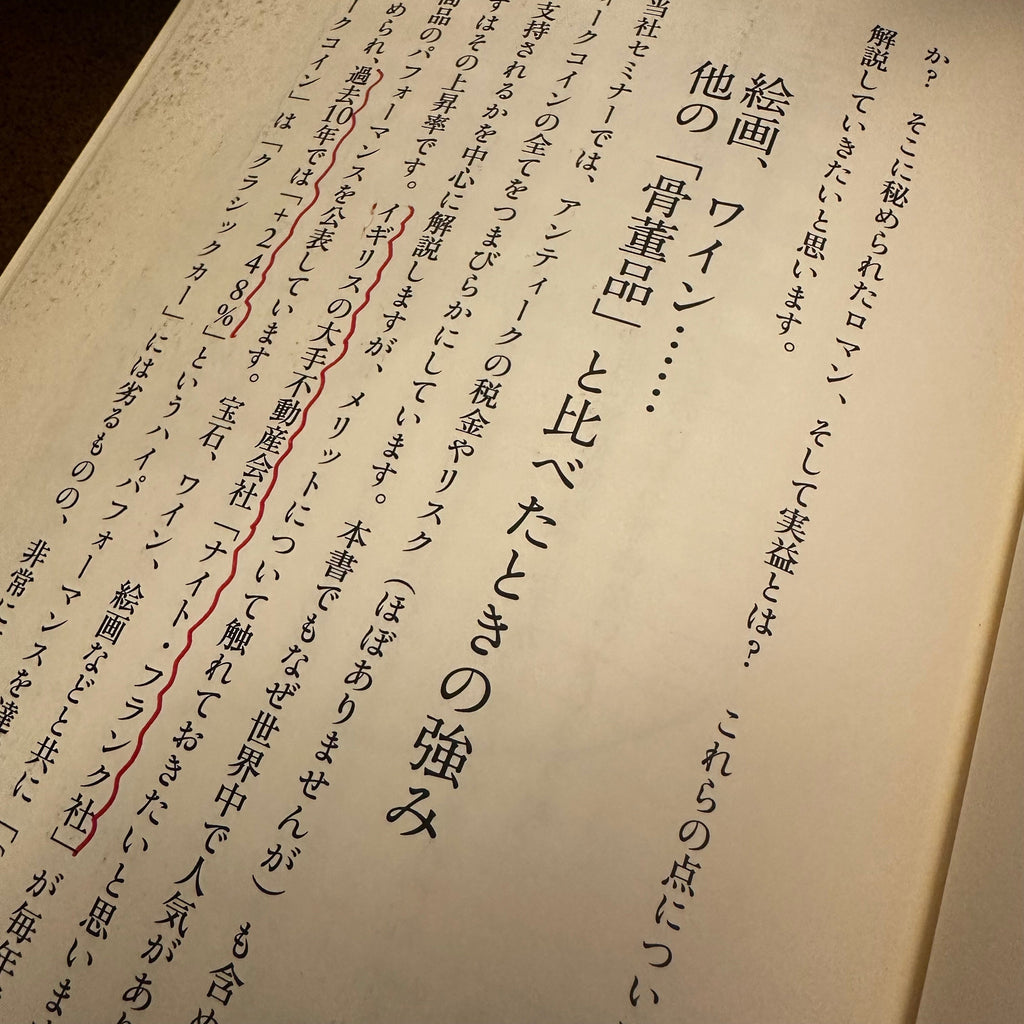 か? そこに秘められたロマン、そして実益とは? これらの点につい
解説していきたいと思います。
絵画、ワイン……
他の「骨董品」と比べたときの強み
当社セミナーでは、アンティークの税金やリスク(ほぼありませんが)も含め
ークコインの全てをつまびらかにしています。本書でもなぜ世界中で人気があり
支持されるかを中心に解説しますが、メリットについて触れておきたいと思いま
ずはその上昇率です。イギリスの大手不動産会社「ナイト・フランク社」が毎年
商品のパフォーマンスを公表しています。宝石、ワイン、絵画などと共に「
められ、過去10年では「+248%」というハイパフォーマンスを達
ークコイン」は「クラシックカー」には劣るものの、非常に